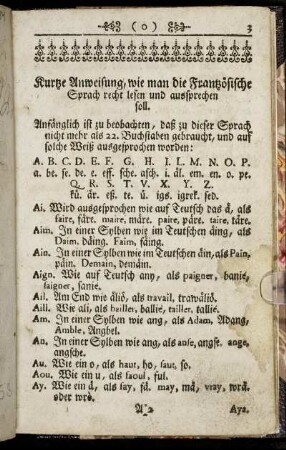 ( o ) 3
Kurtze Anweisung, wie man die Frantzösische
Sprach recht lesen und aussprechen
soll.
Anfänglich ist zu beobachten, daß zu dieser Sprach
nicht mehr als 22. Buchstaben gebraucht, und auf
solche Weiß ausgesprochen worden:
A. B. C. D. E. F. G. H. I. L. M. N. O. P.
a. be. se. de. e. eff. sche. asch. i. äl. em. en. o. pe.
Q. R. S. T. V. X. Y. Z.
kü. är. eß. te. ü. igs. igrek. sed.
Ai. Wird ausgesprochen wie auf Teutsch das ä, als
faire, färe. maire, märe. paire, päre. taire, täre.
Aim. In einer Sylben wie im Teutschen äing, als
Daim. däing. Faim, fäing.
Ain. In einer Sylben wie im Teutschen äin, als Pain,
päin. Demain, demäin.
Aign. Wie auf Teutsch any, als paigner, banie,
saigner, sanie.
Ail. Am End wie äliö, als travail, trawäliö.
Aill. Wie ali, als bailler, ballie, tailler, tallie.
Am. In einer Sylben wie ang, als Adam, Adang,
Amble, Angbel.
An. In einer Sylben wie ang, als anse, angse. ange,
angsche.
Au. Wie ein o, als haut, ho, saut, so.
Aou. Wie ein u, als saoul, sul.
Ay. Wie ein ä, als fay, fä. may, mä, vray, wrä.
oder wrö.
A 2 Aya.